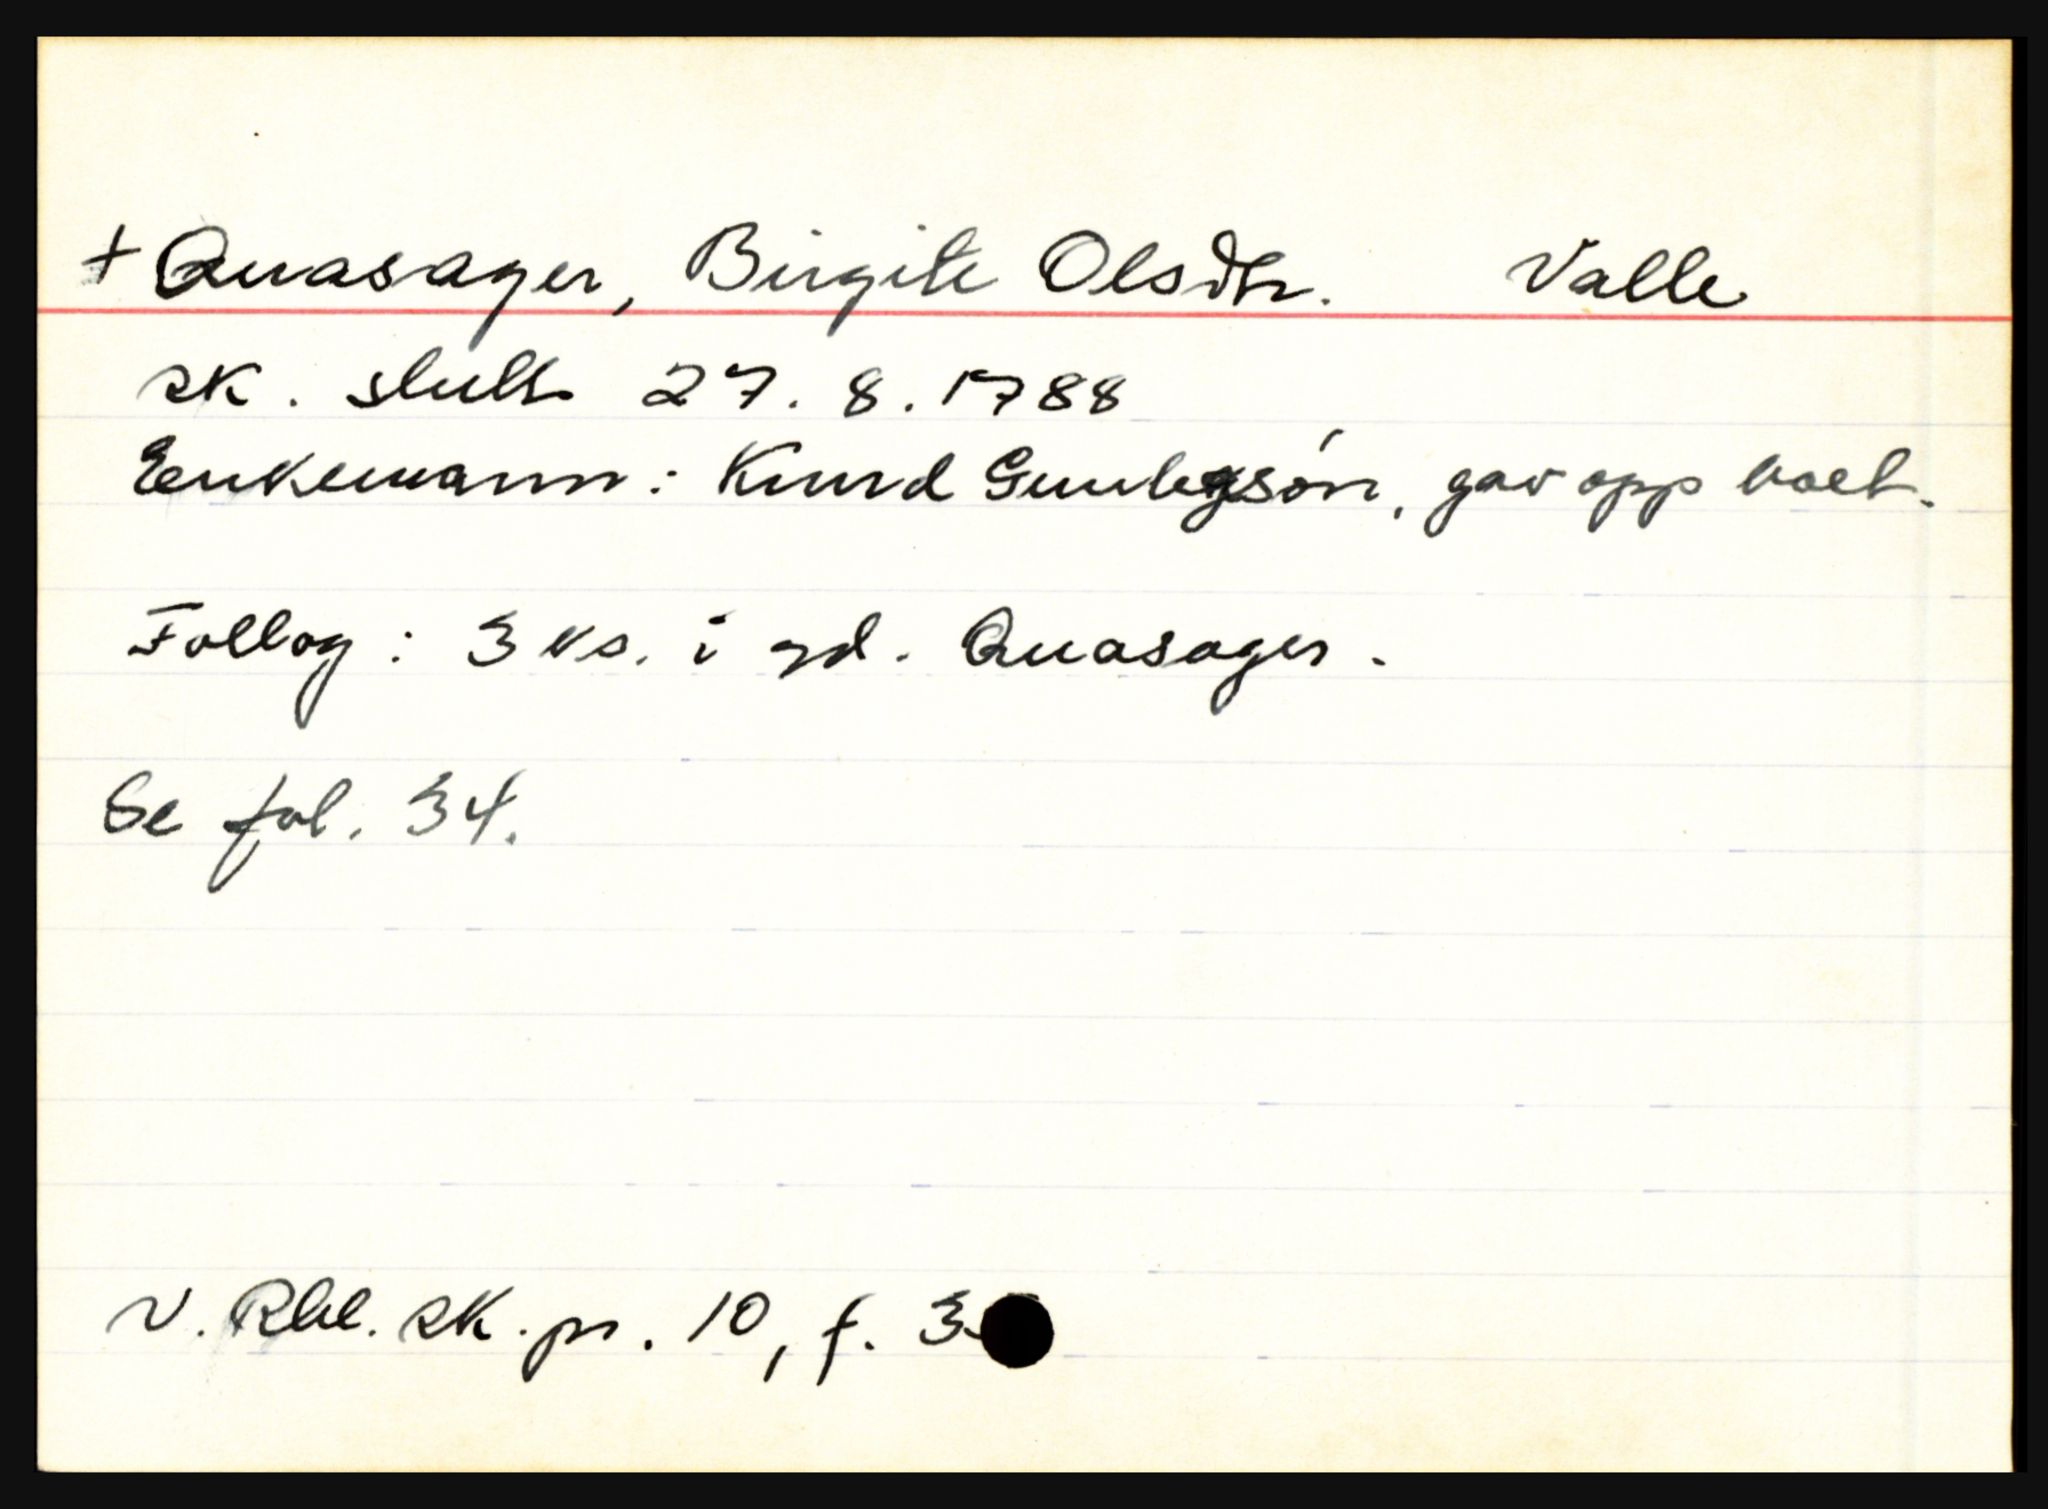 + Quasager, Birgite Olsdtr. Valle
sk. slutt 27. 8. 1788
Enkemann: Knud Gunlegsøn, gav opp boet.
Follog: 3 ks. i gd. Quasager.
Se fol. 34.
V. Rbl. sk. pr. 10, f. 3